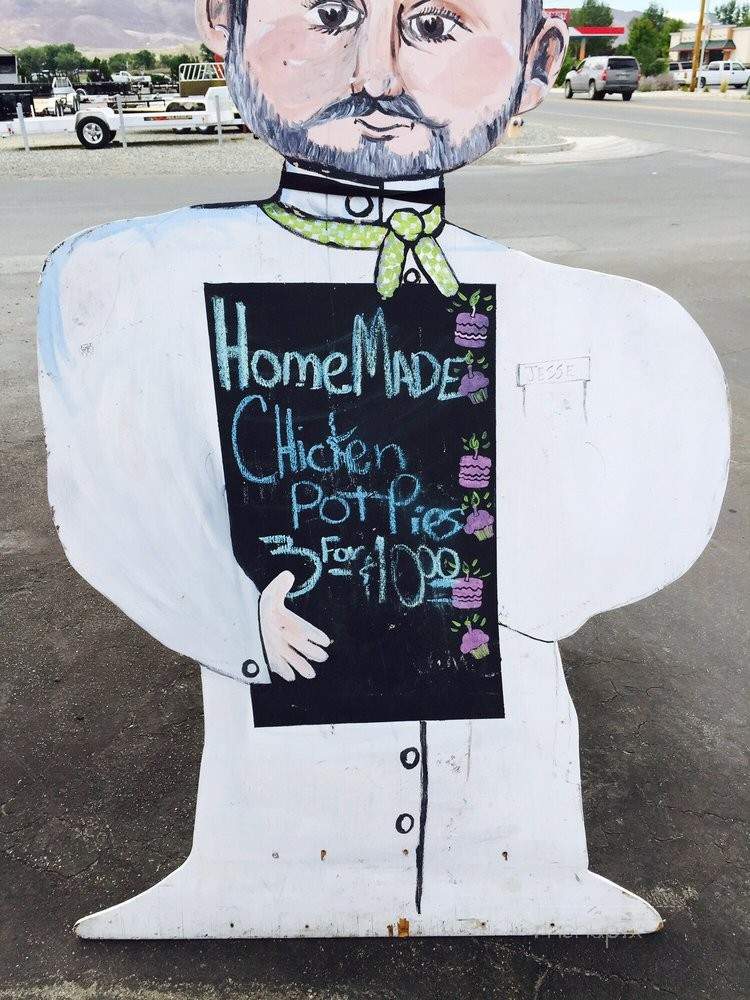 HomeMADE
JESSE
CHicken
Pot Pies
3 For $10.00